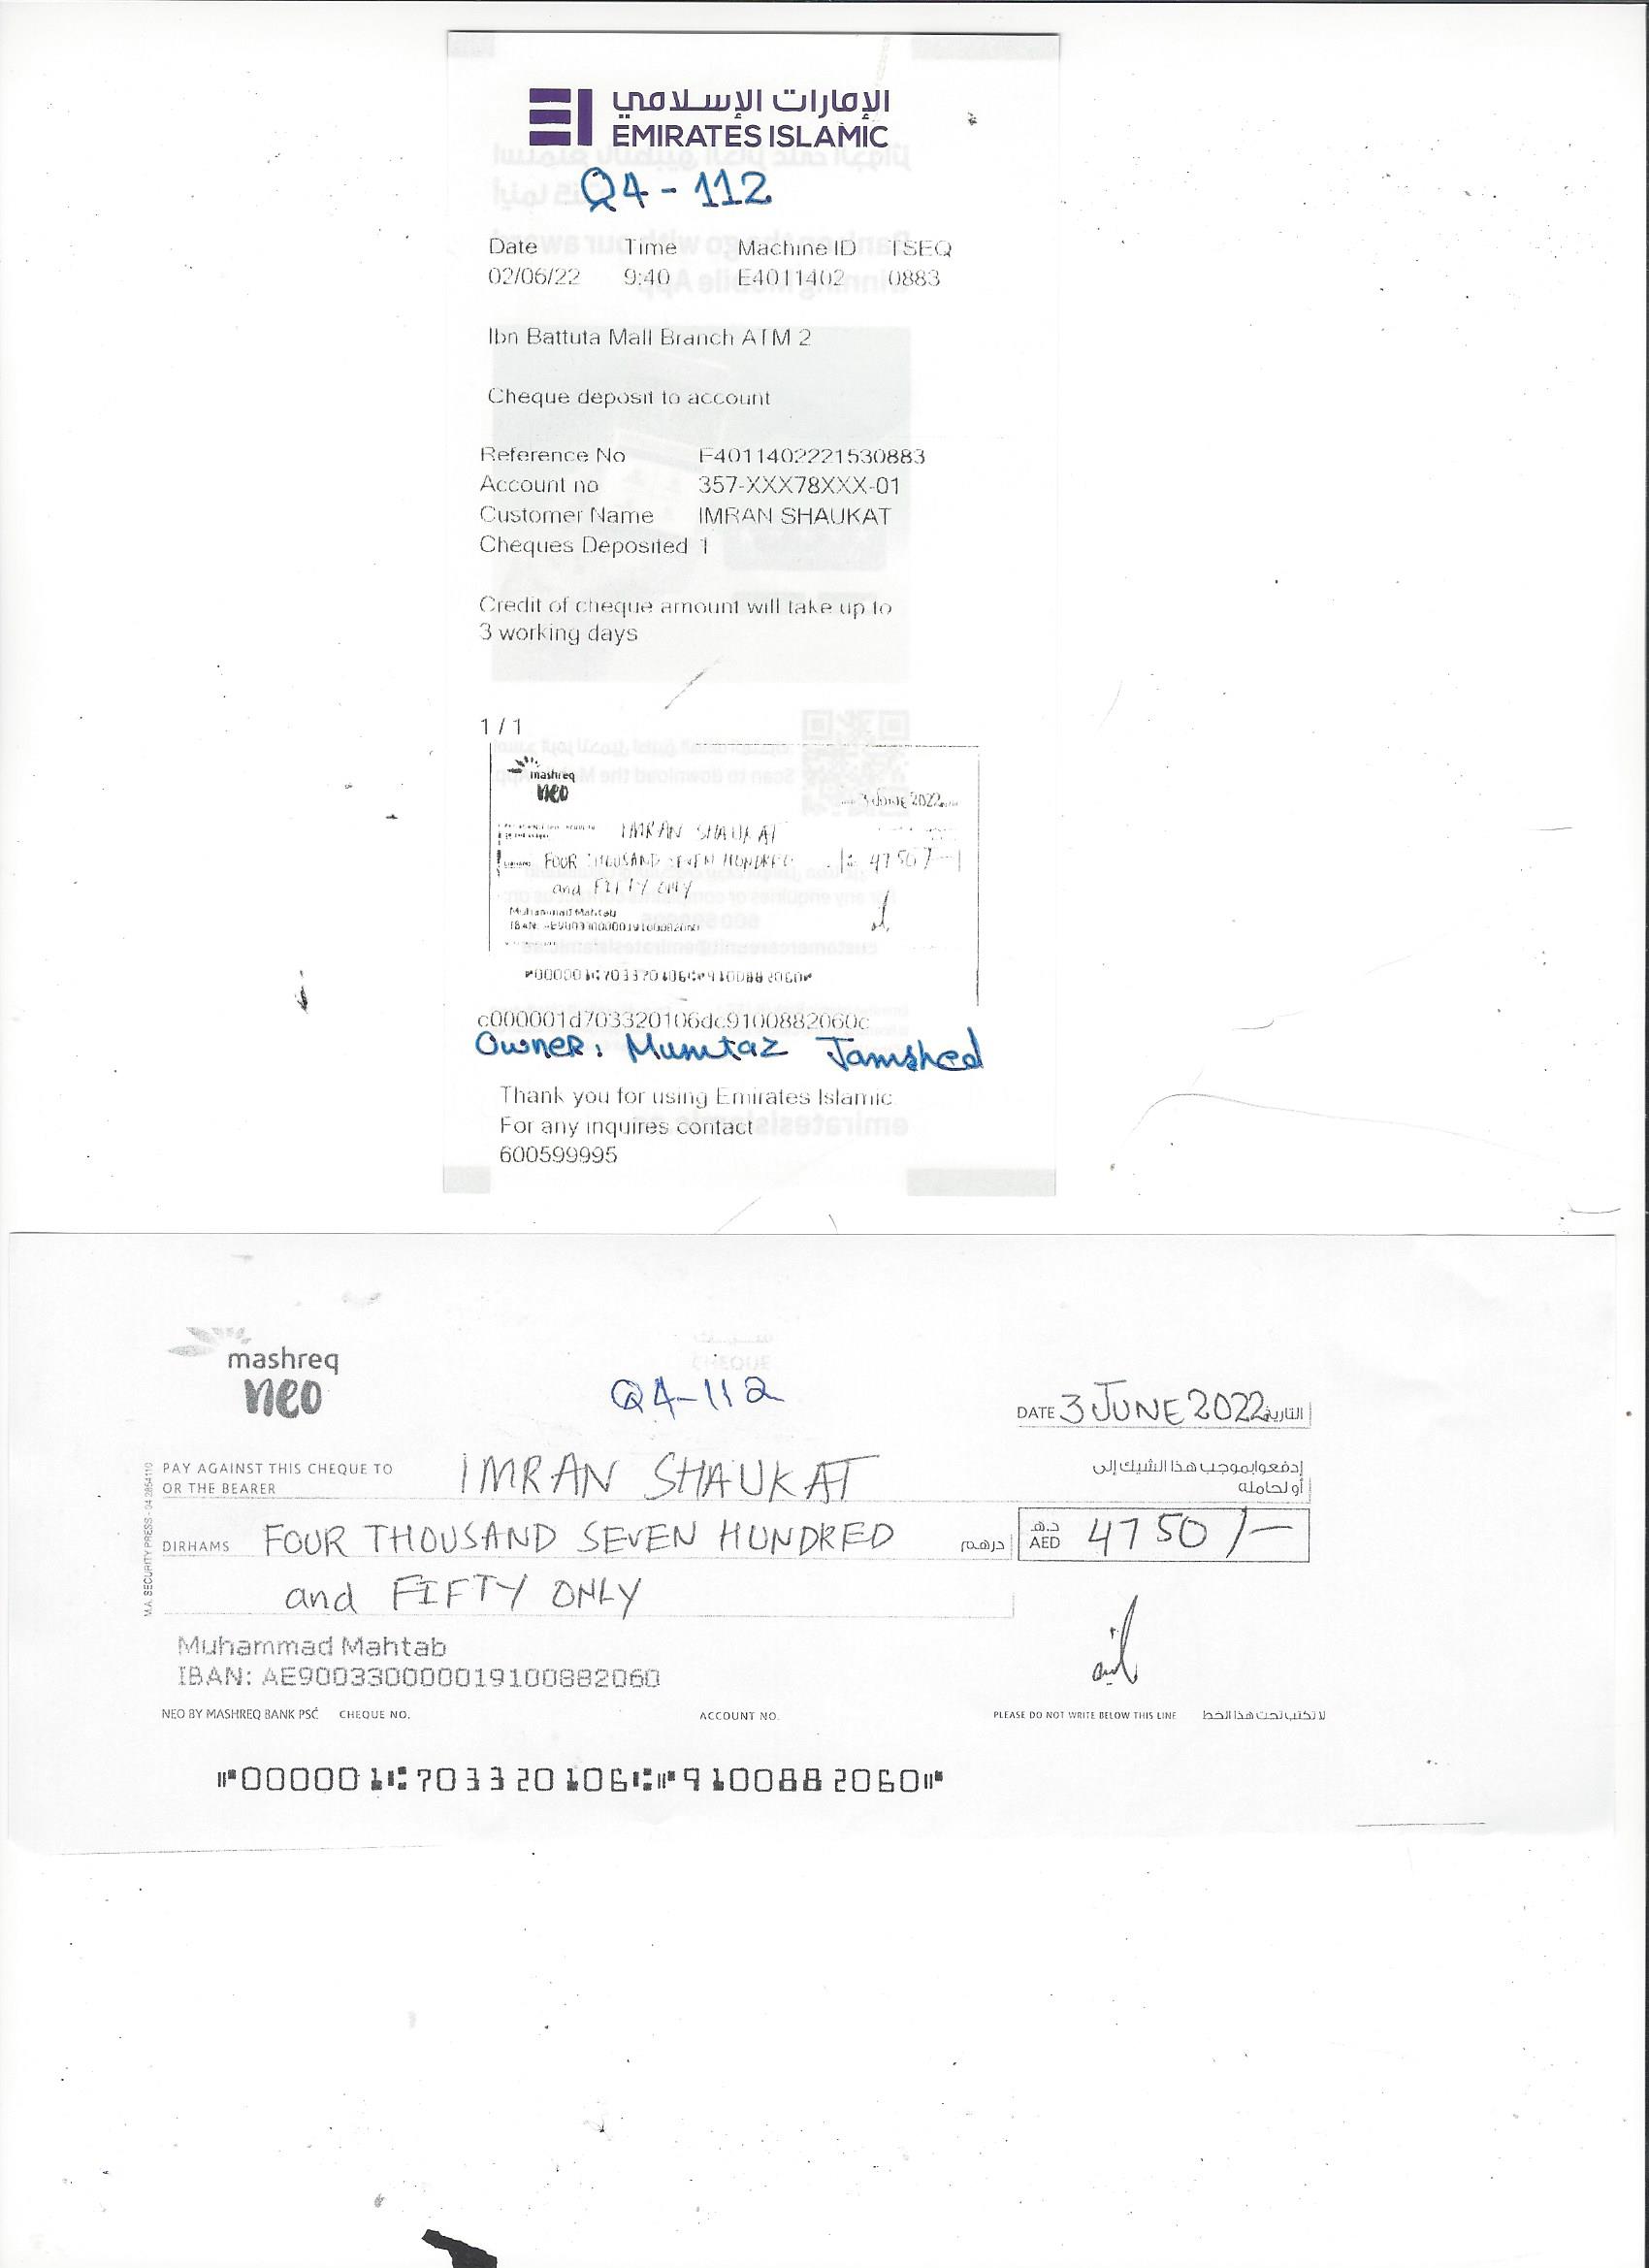 الإمارات الإسلامي
EMIRATES ISLAMIC
Q4 - 112
Date Time Machine ID TSEQ
02/06/22 9:40 E4011402 0883
Ibn Battuta Mall Branch ATM 2
Cheque deposit to account
Reference No E4011402221530883
Account no 357-XXX78XXX-01
Customer Name IMRAN SHAUKAT
Cheques Deposited 1
Credit of cheque amount will take up to
3 working days
1 / 1
mashreq
neo
3 JUNE 2022
IMRAN SHAUKAT
FOUR THOUSAND SEVEN HUNDRED 4750/-
and FIFTY ONLY
Muhammad Mahtab
IBAN: AE900330000019100882060
⑈000001⑆703320106⑆⑈9100882060⑈
c000001d703320106dc9100882060c
Owner: Mumtaz Jamshed
Thank you for using Emirates Islamic
For any inquires contact
600599995
mashreq
neo
Q4-112
DATE 3 JUNE 2022 التاريخ
PAY AGAINST THIS CHEQUE TO IMRAN SHAUKAT إدفعوا بموجب هذا الشيك إلى
OR THE BEARER أو لحامله
DIRHAMS FOUR THOUSAND SEVEN HUNDRED درهم د.هـ AED 4750/-
and FIFTY ONLY
M.A. SECURITY PRESS - 04 2854110
Muhammad Mahtab
IBAN: AE900330000019100882060
NEO BY MASHREQ BANK PSC CHEQUE NO. ACCOUNT NO. PLEASE DO NOT WRITE BELOW THIS LINE لا تكتب تحت هذا الخط
⑈000001⑆703320106⑆⑈9100882060⑈